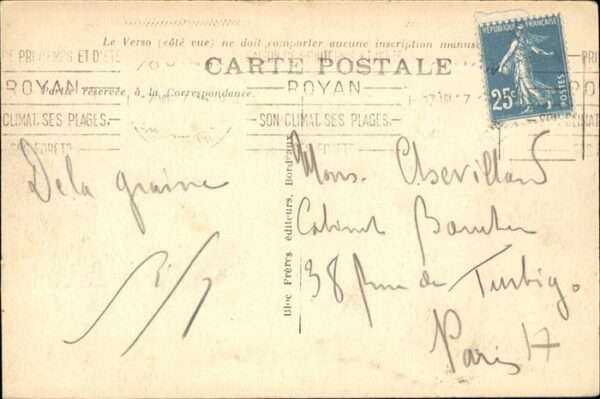 Le Verso (côté vue) ne doit comporter aucune inscription manus
CARTE POSTALE
Partie réservée à la Correspondance.
PRINTEMPS ET D'ÉTÉ
ROYAN
SON CLIMAT. SES PLAGES.
SA FORETS
ROYAN
SON CLIMAT. SES PLAGES.
REPUBLIQUE FRANÇAISE
25c
POSTES
Bloc Frères éditeurs, Bordeaux
De la graine
Mons. Chevilland
Cabinet
38 Rue de Turbigo.
Paris 17